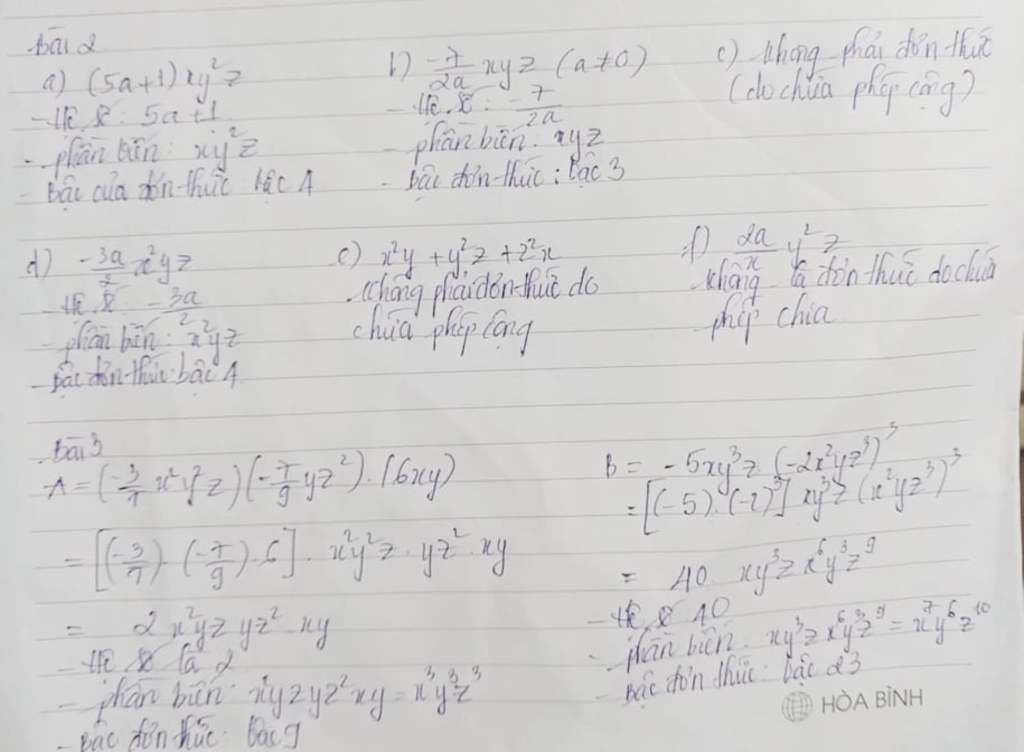 Bài 2
a) (5a+1)xy²z
- Hệ số: 5a+1
- phần biến: xy²z
- Bậc của đơn thức: bậc 4
b) -7/2a xyz (a≠0)
- Hệ số: -7/2a
- phần biến: xyz
- Bậc đơn thức: bậc 3
c) Không phải đơn thức
(do chứa phép cộng)
d) -3a/2 x²yz
- Hệ số: -3a/2
- phần biến: x²yz
- Bậc đơn thức: bậc 4
e) x²y + y²z + z²x
Không phải đơn thức do
chứa phép cộng
f) 2a/x y²z
Không là đơn thức do chứa
phép chia
Bài 3
A = (-3/7 x²y²z)(-7/9 yz²).(6xy)
= [(-3/7).(-7/9).6]. x²y²z. yz². xy
= 2 x²yz yz² xy
- Hệ số là 2
- phần biến: x²yzyz²xy = x³y³z³
- Bậc đơn thức: bậc 9
B = -5xy³z (-2x²yz³)³
= [(-5).(-2)³] xy³z (x²yz³)³
= 40 xy³z x⁶y³z⁹
- Hệ số 40
- phần biến: xy³z x⁶y³z⁹ = x⁷y⁶z¹⁰
- Bậc đơn thức: bậc 23
HÒA BÌNH